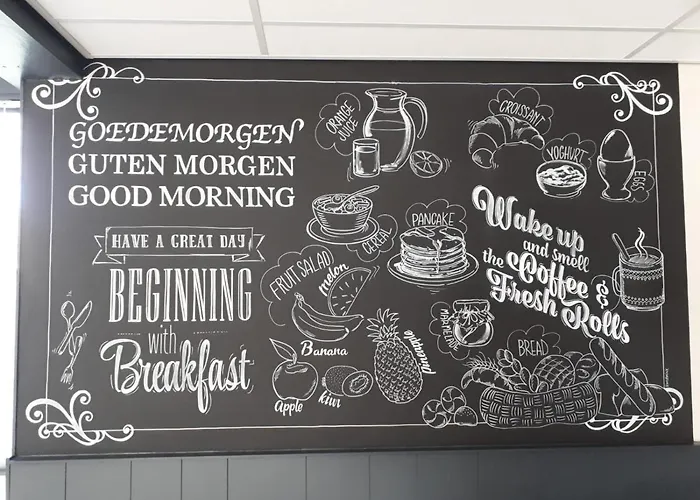 GOEDEMORGEN
GUTEN MORGEN
GOOD MORNING
HAVE A GREAT DAY
BEGINNING
with
Breakfast
ORANGE
JUICE
CROISSANT
YOGHURT
EGGS
CEREAL
PANCAKE
FRUIT SALAD
melon
Banana
Apple
kiwi
pineapple
Wake up
and smell
the Coffee &
Fresh Rolls
BREAD